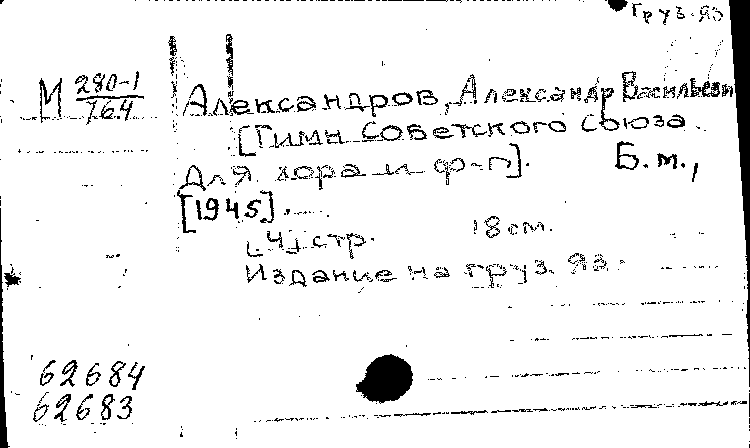 Груз. яз
М 280-1
164
Александров, Александр Васильевич
[Гимн Советского Союза.
Для хора и ф-п]. Б.м.,
[1945].
[4] стр. 18 см.
Издание на груз. яз.
62684
62683